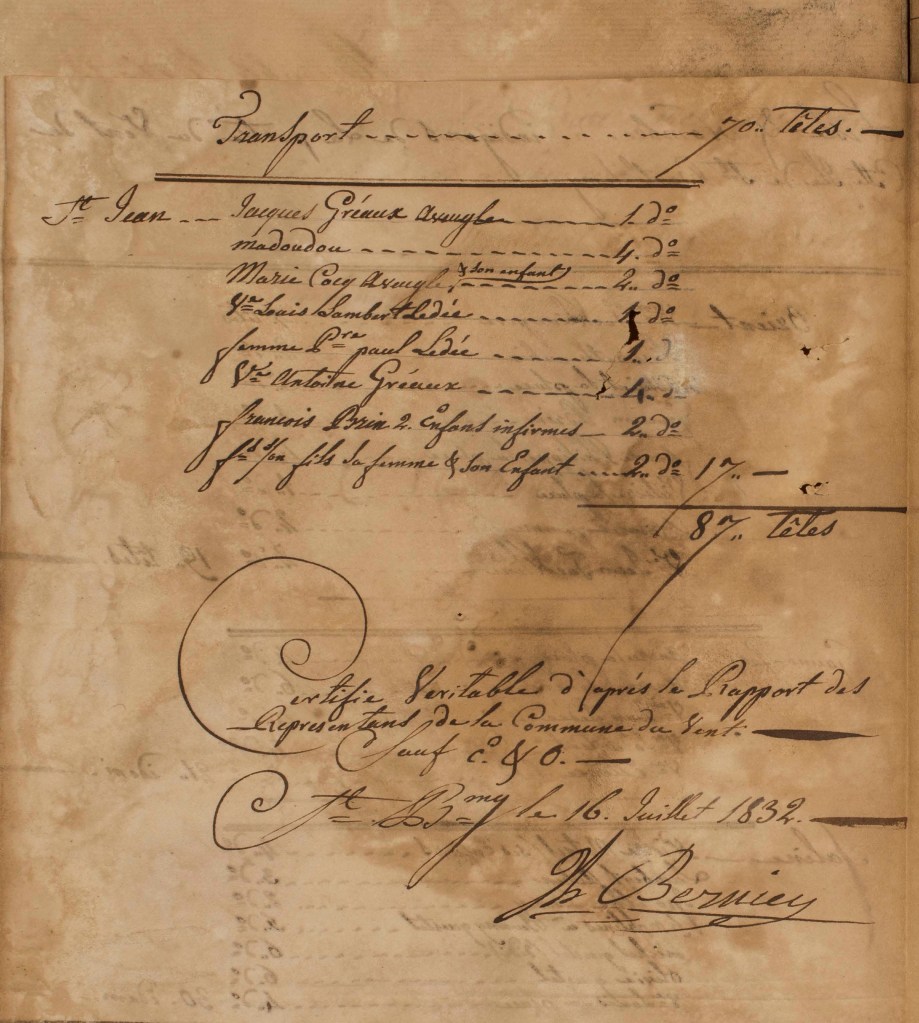 Transport 70.. Têtes.
St Jean Jacques Gréaux Aveugle 1. do
madoudou 4. do
Marie Cocq Aveugle, & son enfant 2.. do
Ve Louis Lambert Ledée 1 do
femme Pre paul Ledée 1.. d
Ve Antoine Gréaux 4. d
francois Brin 2. Enfants infirmes 2.. do
fs son fils sa femme & son Enfant 2.. do 17..
87.. têtes
Certifie Veritable d'aprés le Rapport des
Représentans de la Commune du Vent.
Sauf co. & O.
St Bmy le 16. Juillet 1832.
Bernier